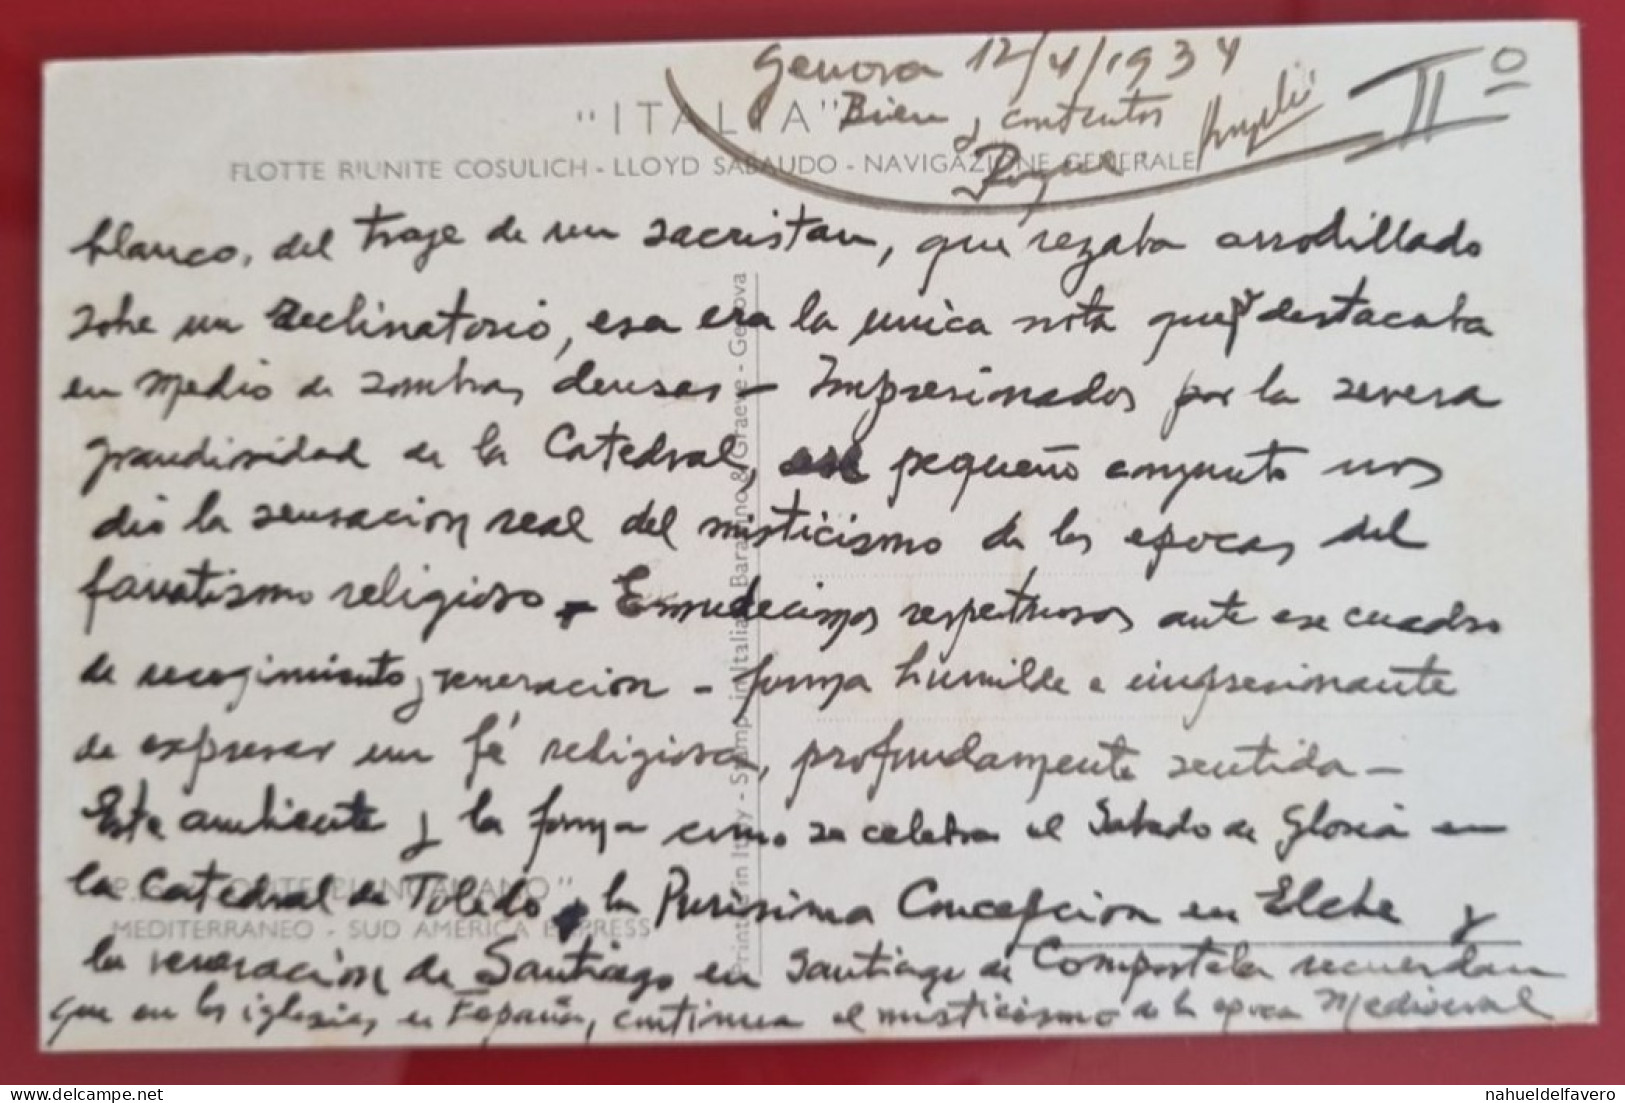 Genova 12/4/1934
IIº
"ITALIA" Bien y contentos
FLOTTE RIUNITE COSULICH - LLOYD SABAUDO - NAVIGAZIONE GENERALE
blanco, del traje de un sacristan, que rezaba arrodillado
sobre un reclinatorio, esa era la unica nota que destacaba
en medio de sombras densas - Impresionados por la severa
grandiosidad de la Catedral, ese pequeño conjunto nos
dió la sensacion real del misticismo de las epocas del
fanatismo religioso - Enmudecimos respetuosos ante ese cuadro
de recogimiento y veneracion - forma humilde e impresionante
de expresar un fé religiosa, profundamente sentida -
Este ambiente y la forma como se celebra el Sabado de Gloria en
la Catedral de Toledo, la Purisima Concepcion en Elche y
la veneración de Santiago en Santiago de Compostela recuerdan
que en las iglesias en España, continua el misticismo de la epoca Medioeval
MEDITERRANEO - SUD AMERICA EXPRESS
Printed in Italy - Stamp. in Italia Barabino & Graeve - Genova
nahueldelfavero